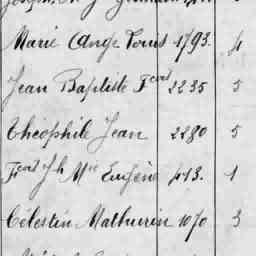 Marie Ange Louis 1793. 4
Jean Baptiste Fcois 2235 5
Théophile Jean 2280 5
Fcois Jh Mie Eugène 413. 1
Célestin Mathurin 1070 3